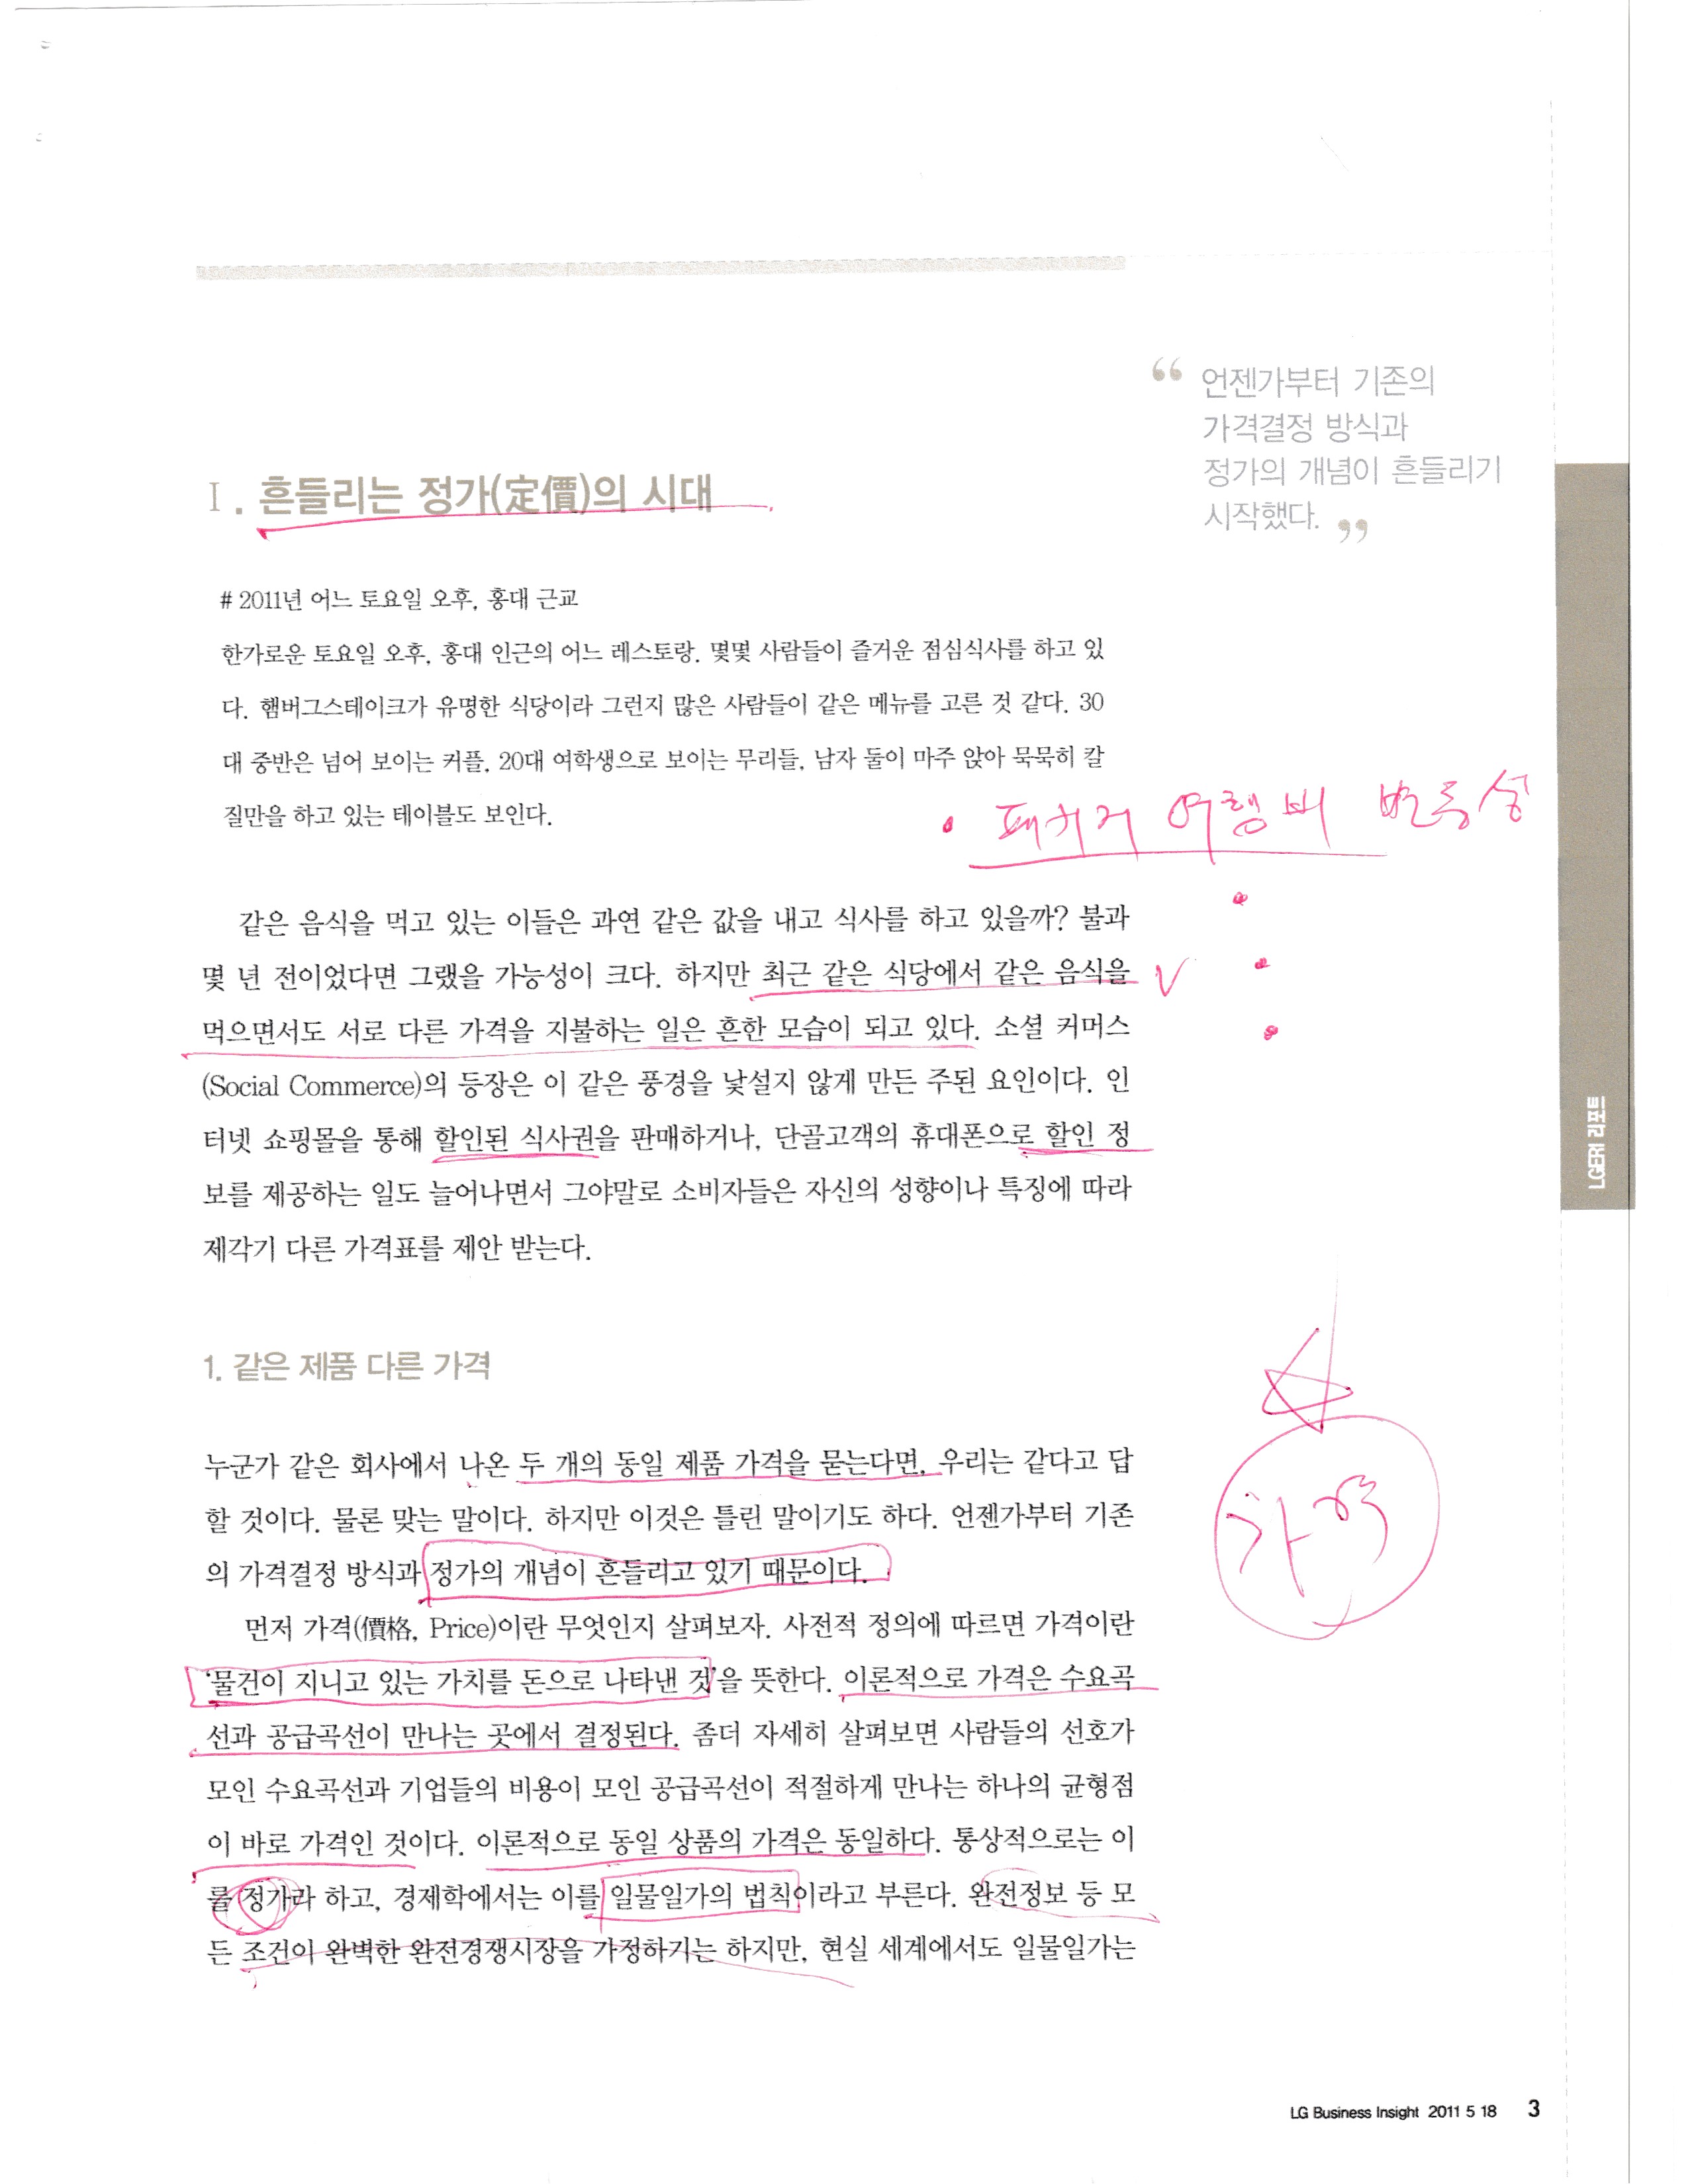 “ 언젠가부터 기존의
가격결정 방식과
정가의 개념이 흔들리기
시작했다. ”
Ⅰ. 흔들리는 정가(定價)의 시대
# 2011년 어느 토요일 오후, 홍대 근교
한가로운 토요일 오후, 홍대 인근의 어느 레스토랑. 몇몇 사람들이 즐거운 점심식사를 하고 있
다. 햄버그스테이크가 유명한 식당이라 그런지 많은 사람들이 같은 메뉴를 고른 것 같다. 30
대 중반은 넘어 보이는 커플, 20대 여학생으로 보이는 무리들, 남자 둘이 마주 앉아 묵묵히 칼
질만을 하고 있는 테이블도 보인다.
• 패키지 여행비 변동성
같은 음식을 먹고 있는 이들은 과연 같은 값을 내고 식사를 하고 있을까? 불과
몇 년 전이었다면 그랬을 가능성이 크다. 하지만 최근 같은 식당에서 같은 음식을
먹으면서도 서로 다른 가격을 지불하는 일은 흔한 모습이 되고 있다. 소셜 커머스
(Social Commerce)의 등장은 이 같은 풍경을 낯설지 않게 만든 주된 요인이다. 인
터넷 쇼핑몰을 통해 할인된 식사권을 판매하거나, 단골고객의 휴대폰으로 할인 정
보를 제공하는 일도 늘어나면서 그야말로 소비자들은 자신의 성향이나 특징에 따라
제각기 다른 가격표를 제안 받는다.
LGERI 리포트
1. 같은 제품 다른 가격
누군가 같은 회사에서 나온 두 개의 동일 제품 가격을 묻는다면, 우리는 같다고 답
할 것이다. 물론 맞는 말이다. 하지만 이것은 틀린 말이기도 하다. 언젠가부터 기존
의 가격결정 방식과 정가의 개념이 흔들리고 있기 때문이다.
가격
먼저 가격(價格, Price)이란 무엇인지 살펴보자. 사전적 정의에 따르면 가격이란
‘물건이 지니고 있는 가치를 돈으로 나타낸 것’을 뜻한다. 이론적으로 가격은 수요곡
선과 공급곡선이 만나는 곳에서 결정된다. 좀더 자세히 살펴보면 사람들의 선호가
모인 수요곡선과 기업들의 비용이 모인 공급곡선이 적절하게 만나는 하나의 균형점
이 바로 가격인 것이다. 이론적으로 동일 상품의 가격은 동일하다. 통상적으로는 이
를 정가라 하고, 경제학에서는 이를 일물일가의 법칙이라고 부른다. 완전정보 등 모
든 조건이 완벽한 완전경쟁시장을 가정하기는 하지만, 현실 세계에서도 일물일가는
LG Business Insight 2011 5 18 3